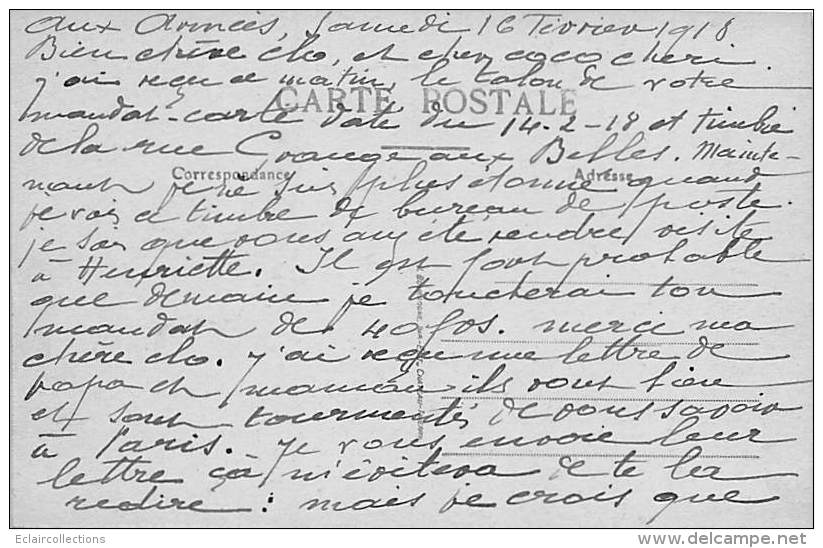 aux Armées, Samedi 16 Février 1918
Bien chère clo, et cher coco cheri
j'ai reçu ce matin, le talon de votre
CARTE POSTALE
mandat-carte daté du 14-2-18 et timbré
de la rue Grange aux Belles. Mainte-
Correspondance
Adresse
nant je ne suis plus étonné quand
je vois ce timbre de bureau de poste.
je sais que vous avez été rendre visite
à Henriette. Il est fort probable
que demain je toucherai ton
mandat de 40 fcs. merci ma
chère clo. j'ai reçu une lettre de
papa et maman ils vont bien
et sont tourmentés de vous savoir
à Paris. je vous envoie leur
lettre çà m'évitera de te la
redire : mais je crois que
Eclaircollections
Delcampe.net